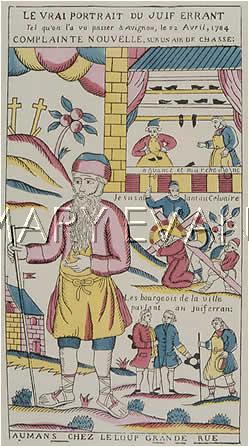 LE VRAI PORTRAIT DU JUIF ERRANT
Tel qu'on l'a vu passer à Avignon, le 22 Avril, 1784
COMPLAINTE NOUVELLE, SUR UN AIR DE CHASSE:
avance et marche donc
Jesus al lant au Calvaire
MARY EVANS
Les bourgeois de la ville
parlant au juif erran:
AUMANS CHEZ LELOUP GRANDE RUE